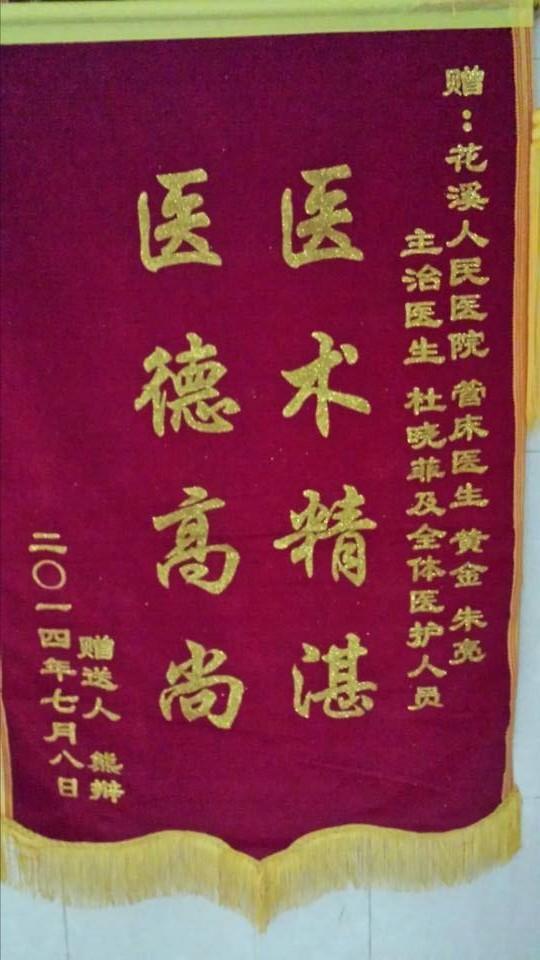 赠：花溪人民医院 管床医生 黄金 朱亮
主治医生 杜晓菲及全体医护人员
医术精湛
医德高尚
赠送人 熊辫
二〇一四年七月八日